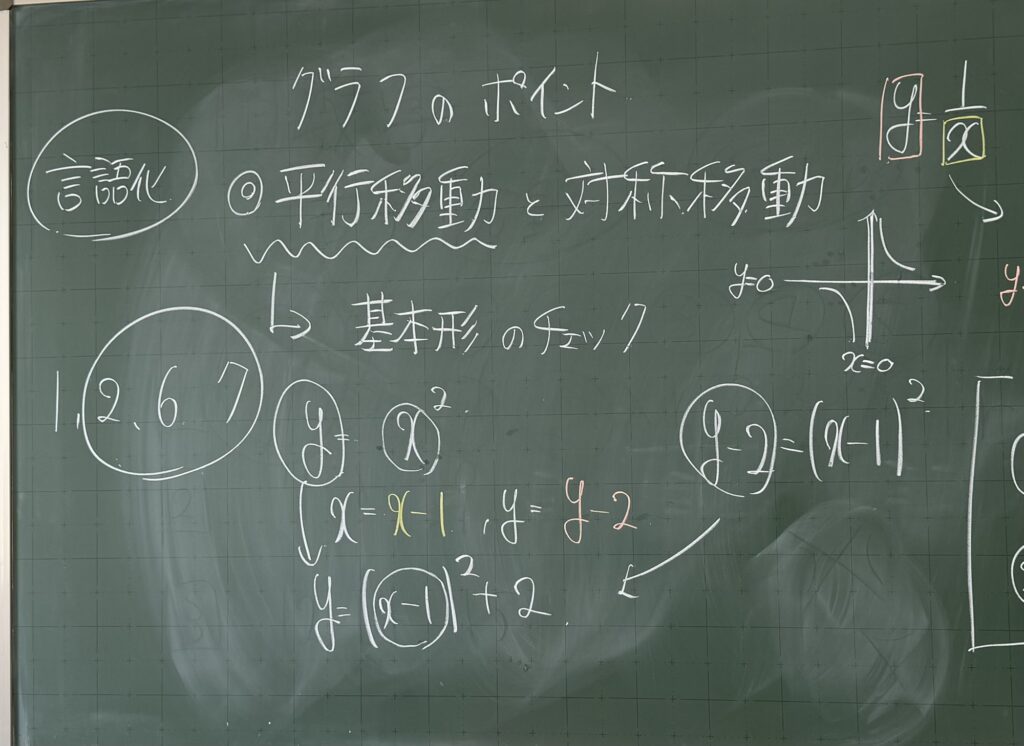 グラフのポイント
言語化
◎平行移動と対称移動
↳ 基本形のチェック
1, 2, 6 7
y = x²
x = x-1, y = y-2
y = (x-1)² + 2
y-2 = (x-1)²
y = 1/x
y=0
x=0
y=